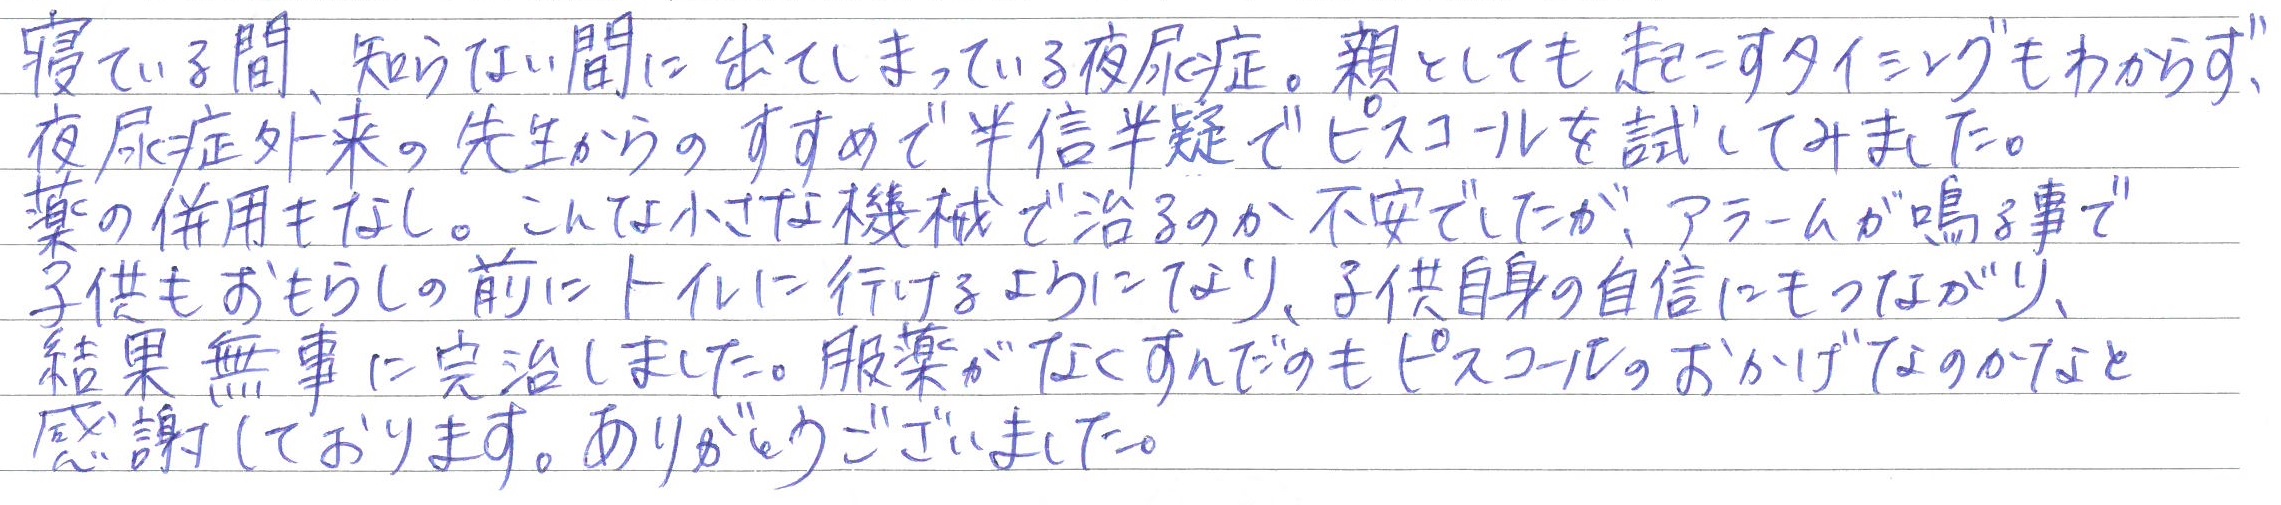 寝ている間、知らない間に出てしまっている夜尿症。親としても起こすタイミングもわからず、
夜尿症外来の先生からのすすめで半信半疑でピスコールを試してみました。
薬の併用もなし。こんな小さな機械で治るのか不安でしたが、アラームが鳴る事で
子供もおもらしの前にトイレに行けるようになり、子供自身の自信にもつながり、
結果無事に完治しました。服薬がなくすんだのもピスコールのおかげなのかなと
感謝しております。ありがとうございました。